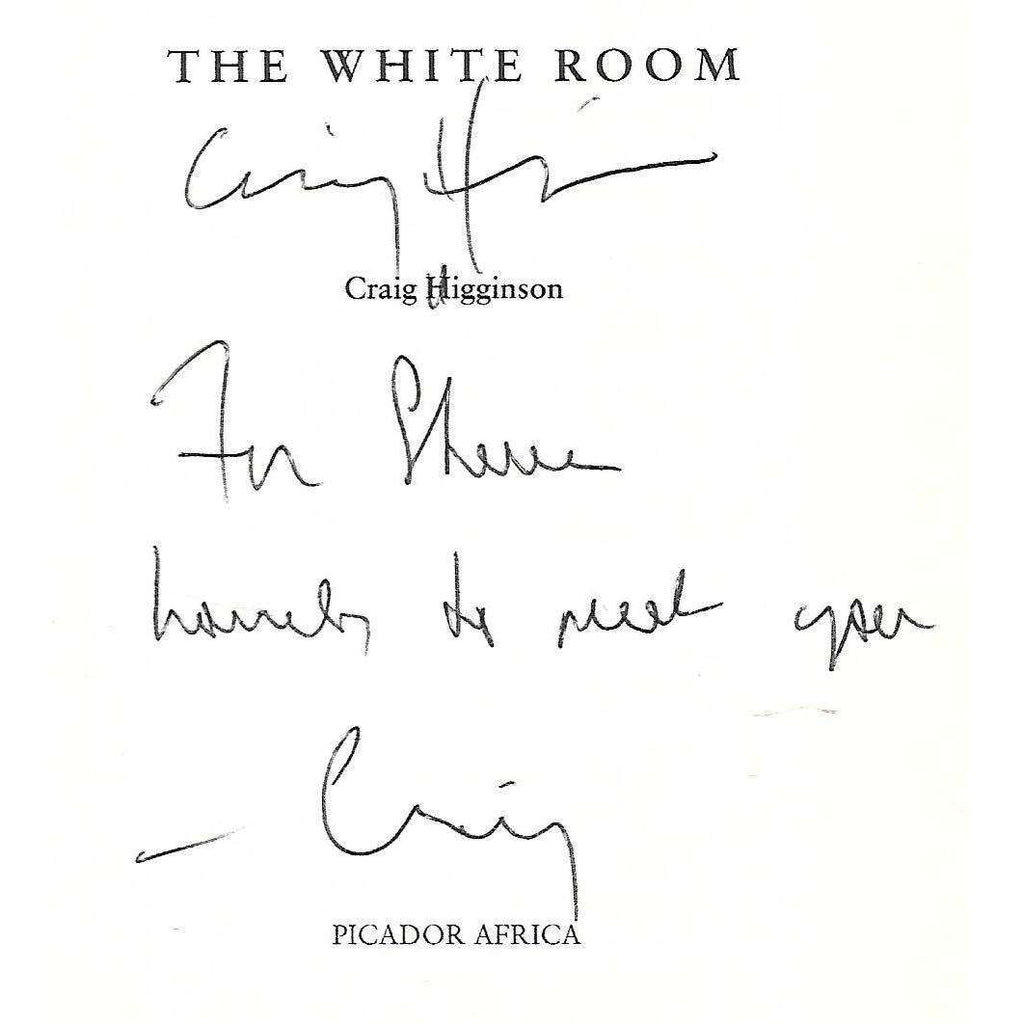 THE WHITE ROOM
Craig H
Craig Higginson
For
to meet you
— Craig
PICADOR AFRICA